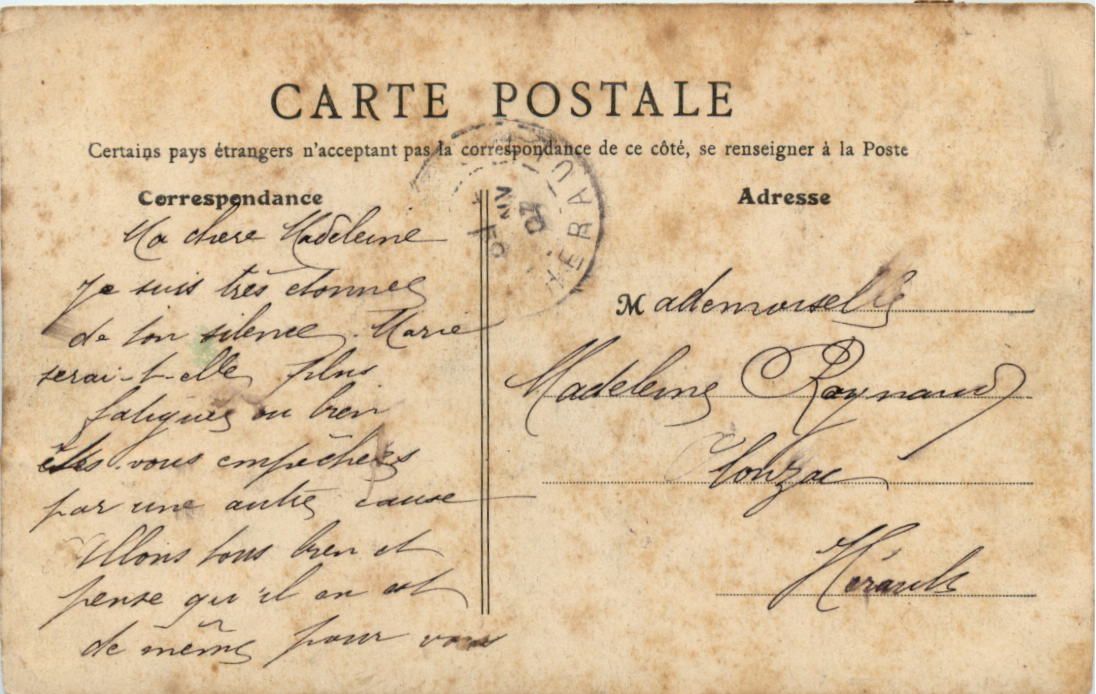 CARTE POSTALE
Certains pays étrangers n'acceptant pas la correspondance de ce côté, se renseigner à la Poste
Correspondance
Ma chere Madeleine
Je suis très étonnée
de ton silence. Marie
serai-t-elle plus
fatiguée ou bien
êtes vous empêchées
par une autre cause
Allons tous bien et
pense qu'il en est
de même pour vous
Adresse
Mademoiselle
Madeleine Raynaud
Olonzac
Hérault
HERAU
07